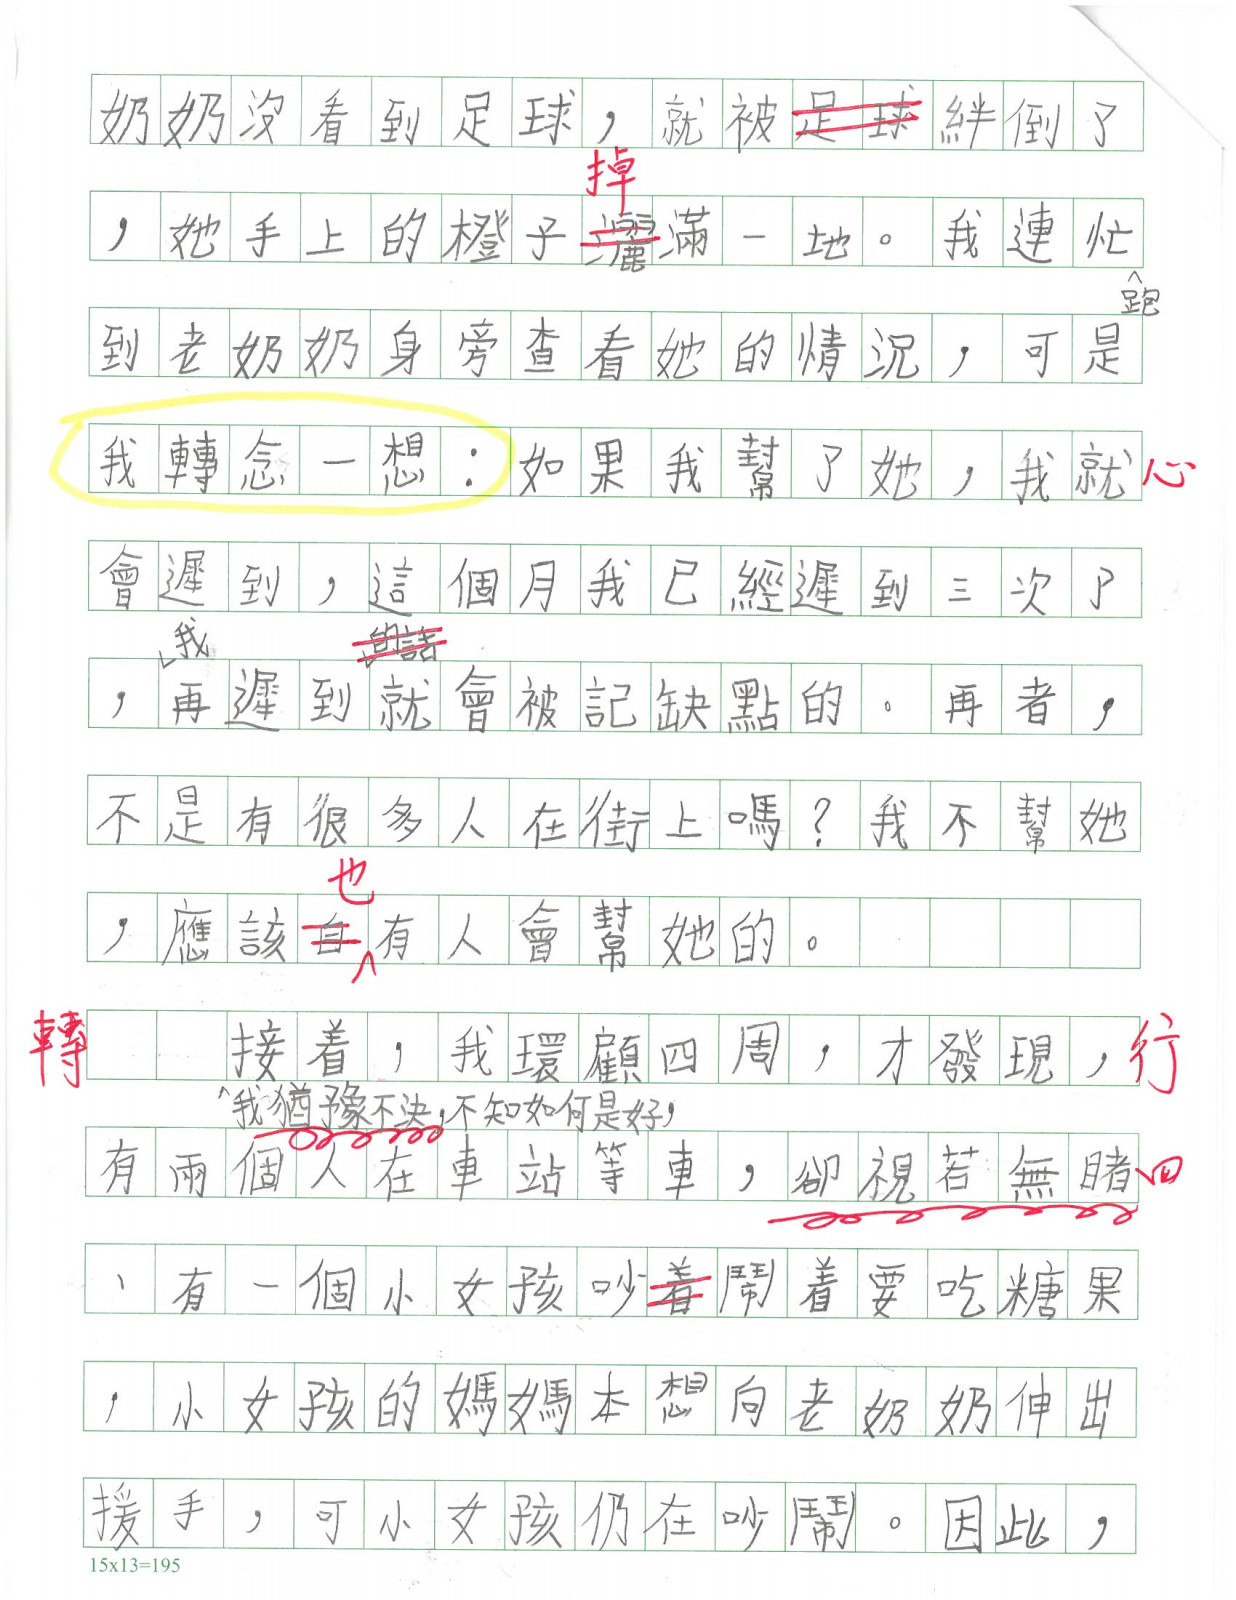 奶奶沒看到足球，就被足球絆倒了
掉
，她手上的橙子灑滿一地。我連忙
跑
到老奶奶身旁查看她的情況，可是
我轉念一想：如果我幫了她，我就 心
會遲到，這個月我已經遲到三次了
我 的話
，再遲到就會被記缺點的。再者，
不是有很多人在街上嗎？我不幫她
也
，應該自有人會幫她的。
轉 接着，我環顧四周，才發現，行
我猶豫不決，不知如何是好，
有兩個人在車站等車，卻視若無睹 四
、有一個小女孩吵着鬧着要吃糖果
，小女孩的媽媽本想向老奶奶伸出
援手，可小女孩仍在吵鬧。因此，
15x13=195